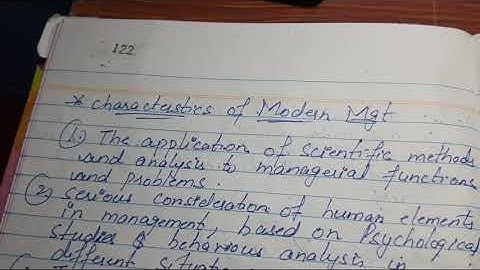 122
* characteristics of Modern Mgt
(1) The application of scientific methods
and analysis to managerial functions
and problems.
(2) serious consideration of human elements
in management, based on Psychological
studies & behavious analysis in
different